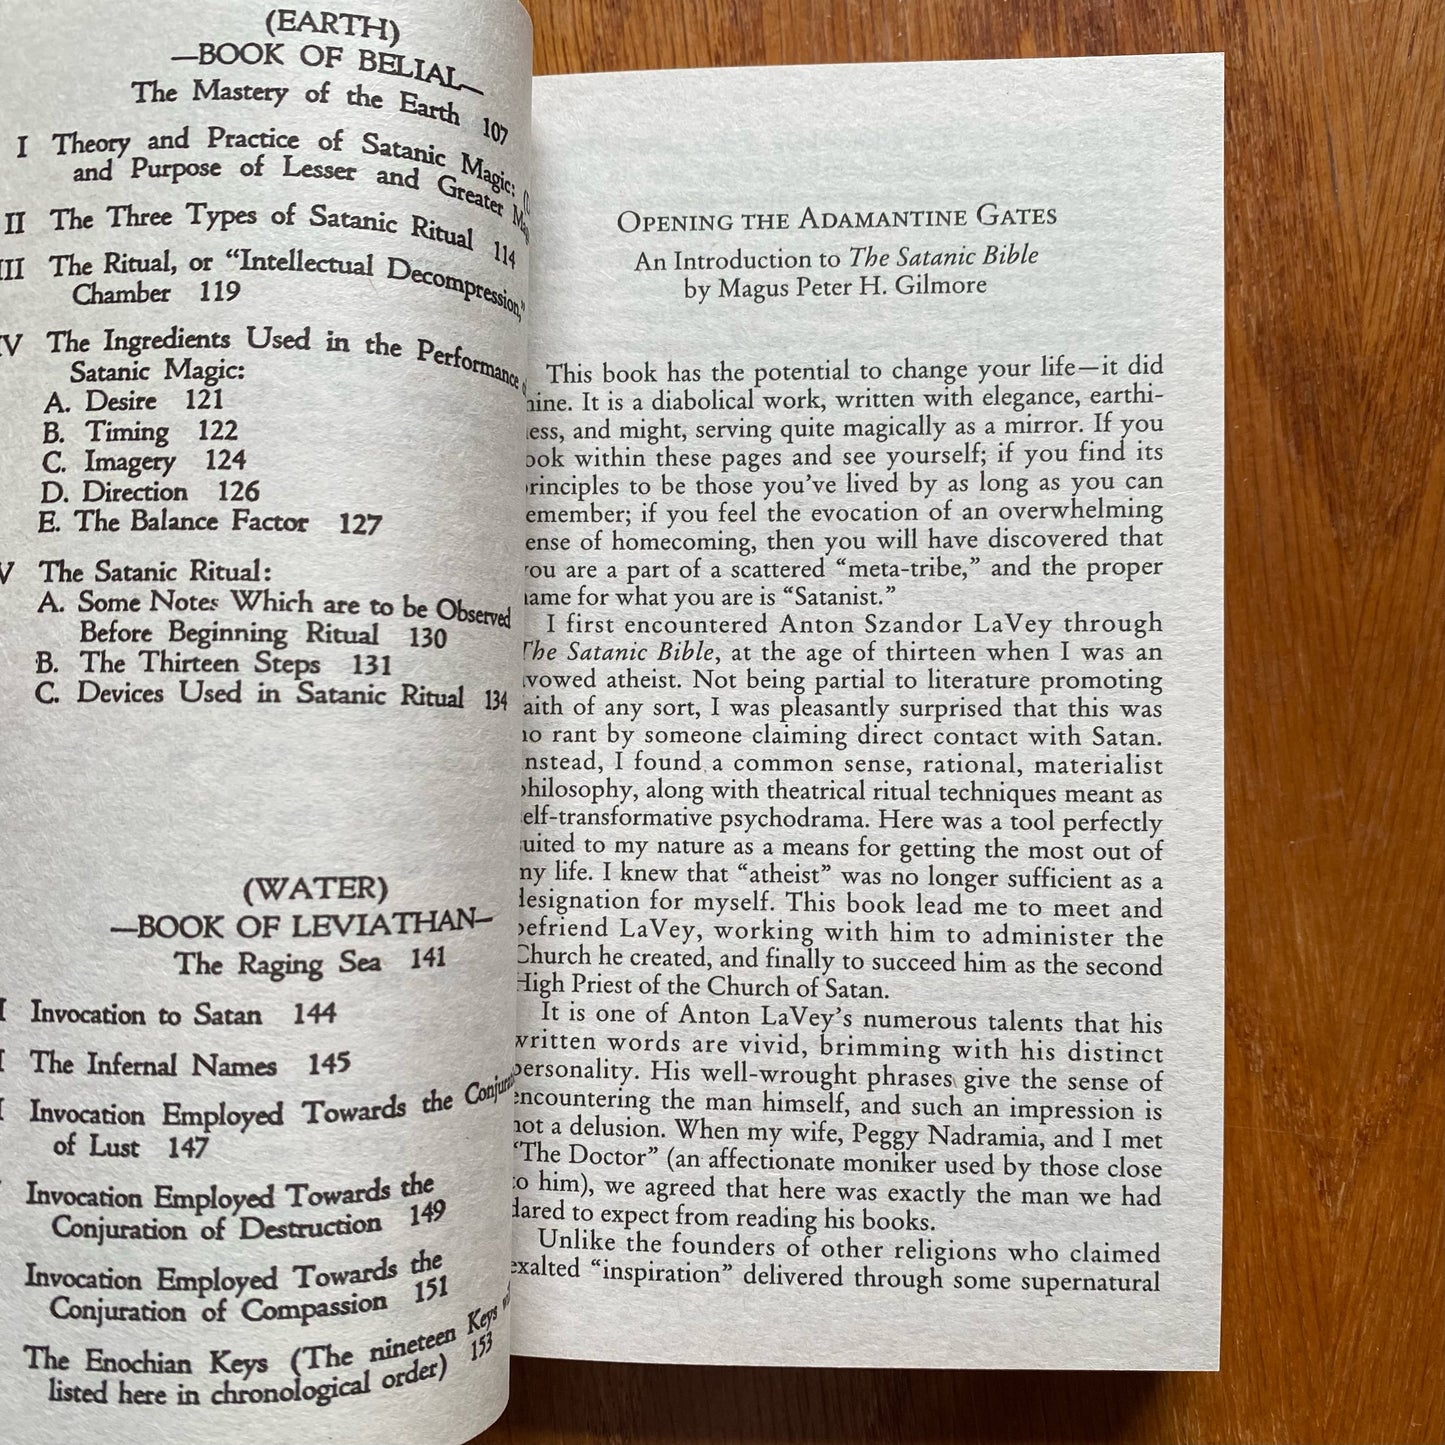 (EARTH)
—BOOK OF BELIAL—
The Mastery of the Earth 107
I Theory and Practice of Satanic Magic:
and Purpose of Lesser and Greater
II The Three Types of Satanic Ritual 114
III The Ritual, or “Intellectual Decompression,”
Chamber 119
The Ingredients Used in the Performance
Satanic Magic:
A. Desire 121
B. Timing 122
C. Imagery 124
D. Direction 126
E. The Balance Factor 127
V The Satanic Ritual:
A. Some Notes Which are to be Observed
Before Beginning Ritual 130
B. The Thirteen Steps 131
C. Devices Used in Satanic Ritual 134
(WATER)
—BOOK OF LEVIATHAN—
The Raging Sea 141
Invocation to Satan 144
The Infernal Names 145
Invocation Employed Towards the
of Lust 147
Invocation Employed Towards the
Conjuration of Destruction 149
Invocation Employed Towards the
Conjuration of Compassion 151
The Enochian Keys (The nineteen Keys
listed here in chronological order) 153
OPENING THE ADAMANTINE GATES
An Introduction to The Satanic Bible
by Magus Peter H. Gilmore
This book has the potential to change your life—it did
It is a diabolical work, written with elegance, earthi-
and might, serving quite magically as a mirror. If you
within these pages and see yourself; if you find its
to be those you’ve lived by as long as you can
if you feel the evocation of an overwhelming
of homecoming, then you will have discovered that
are a part of a scattered “meta-tribe,” and the proper
for what you are is “Satanist.”
I first encountered Anton Szandor LaVey through
The Satanic Bible, at the age of thirteen when I was an
atheist. Not being partial to literature promoting
of any sort, I was pleasantly surprised that this was
rant by someone claiming direct contact with Satan.
I found a common sense, rational, materialist
philosophy, along with theatrical ritual techniques meant as
self-transformative psychodrama. Here was a tool perfectly
to my nature as a means for getting the most out of
my life. I knew that “atheist” was no longer sufficient as a
designation for myself. This book lead me to meet and
befriend LaVey, working with him to administer the
Church he created, and finally to succeed him as the second
High Priest of the Church of Satan.
It is one of Anton LaVey’s numerous talents that his
written words are vivid, brimming with his distinct
personality. His well-wrought phrases give the sense of
encountering the man himself, and such an impression is
not a delusion. When my wife, Peggy Nadramia, and I met
“The Doctor” (an affectionate moniker used by those close
to him), we agreed that here was exactly the man we had
dared to expect from reading his books.
Unlike the founders of other religions who claimed
exalted “inspiration” delivered through some supernatural